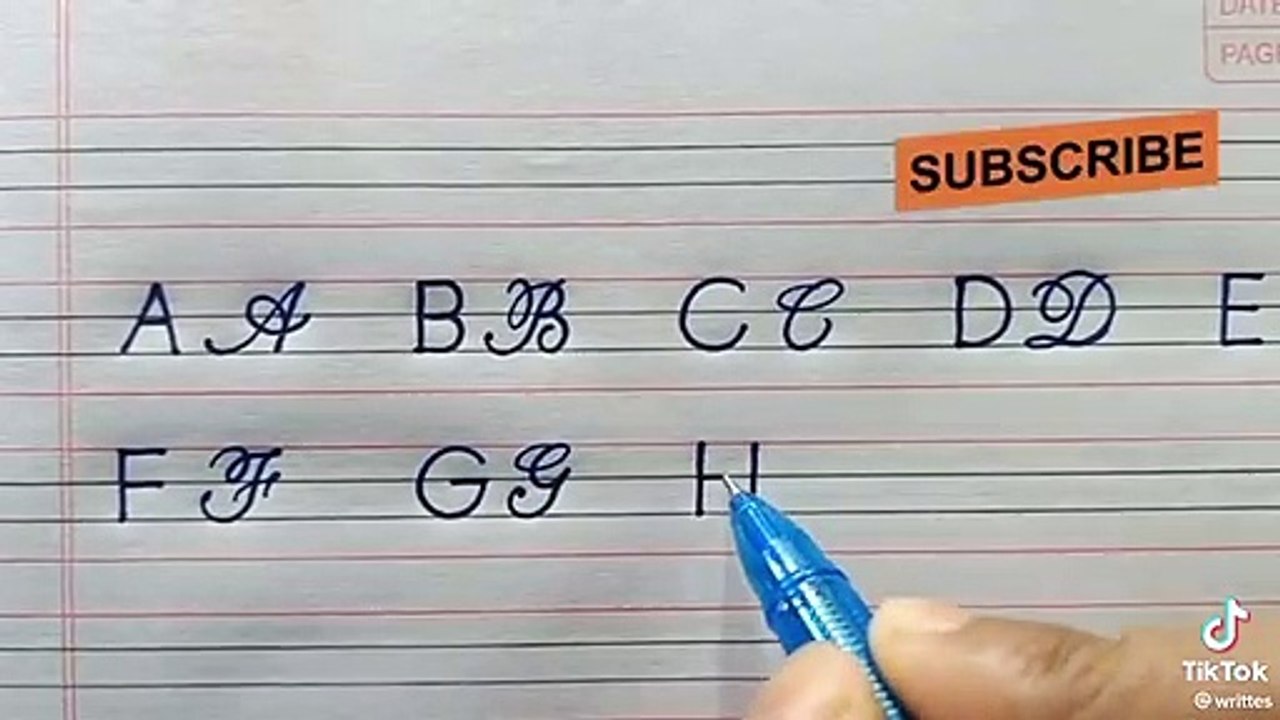 DATE
PAGE
SUBSCRIBE
A A B B C C D D E
F F G G H
TikTok
@writtes